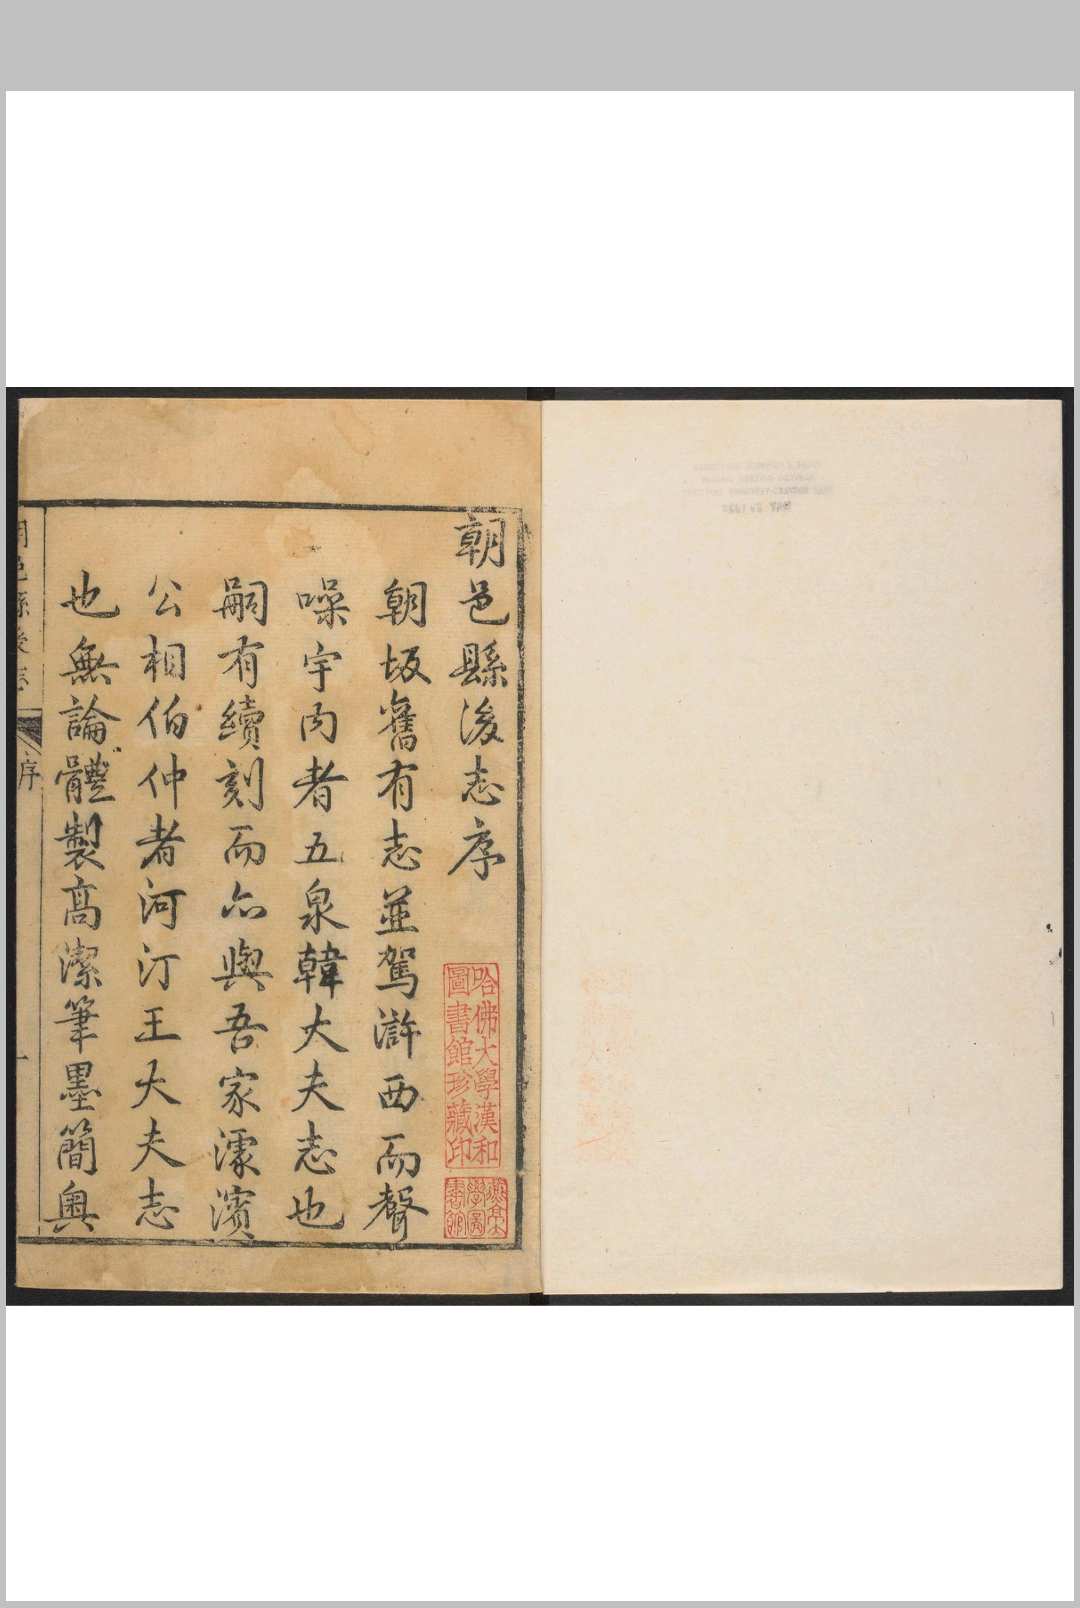 朝邑縣後志序
朝坂舊有志並駕滸西而聲
噪宇内者五泉韓大夫志也
嗣有續刻而亦與吾家濛濱
公相伯仲者河汀王大夫志
也無論體製高潔筆墨簡奥
哈佛大學漢和
圖書館珍藏印
邑縣後志
序